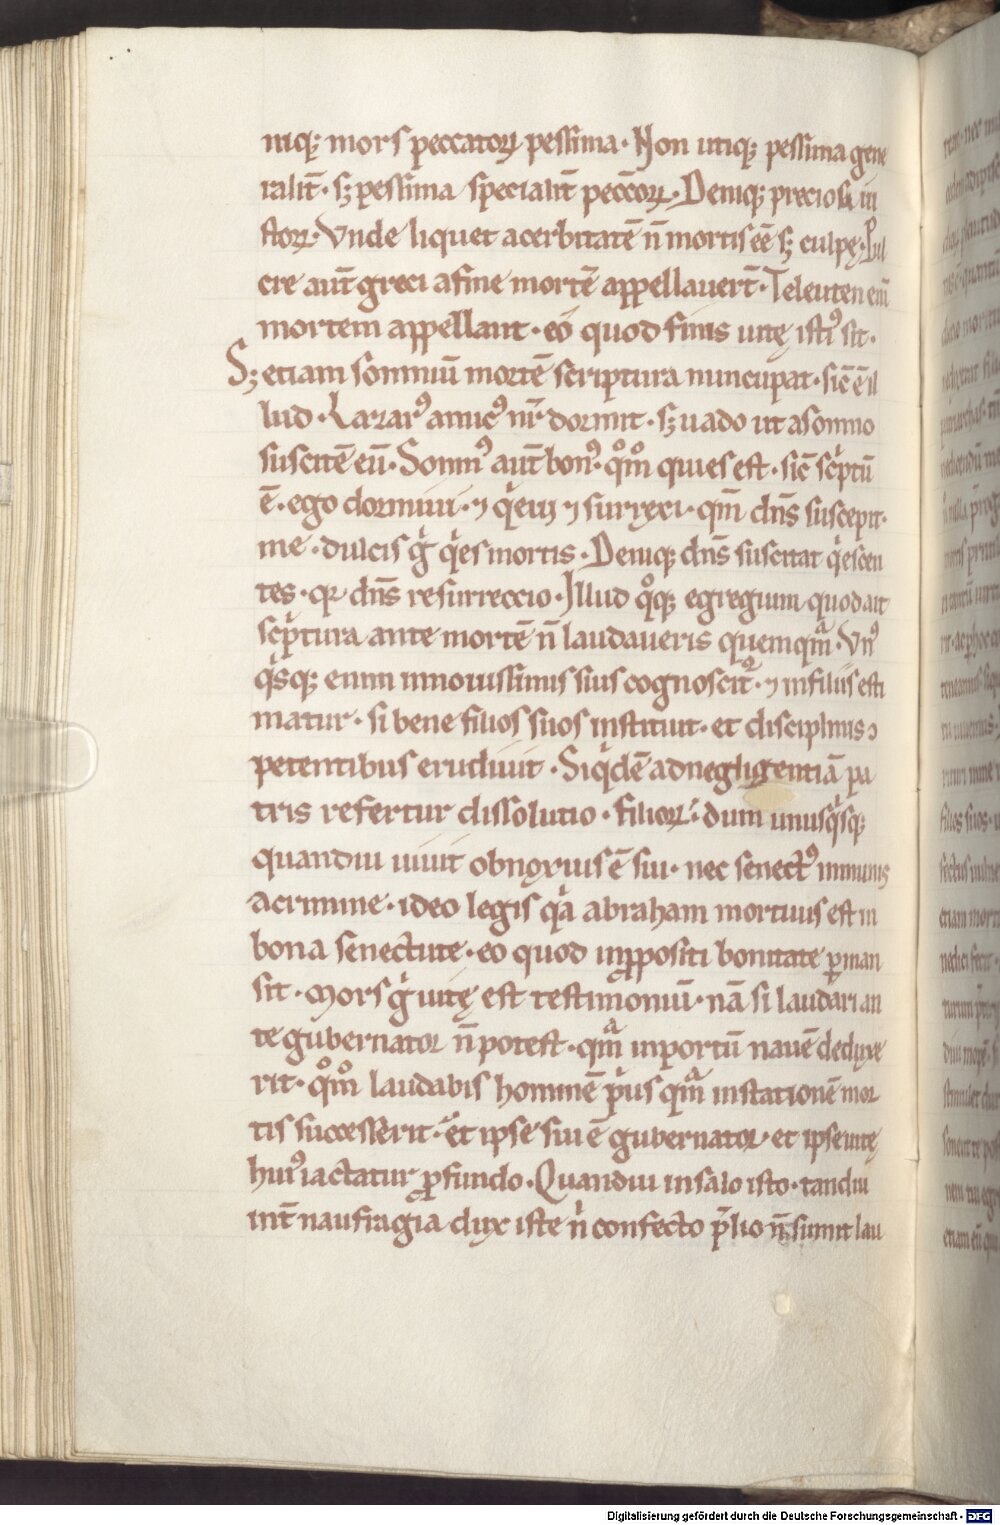 niq; mors peccatoꝝ pessima. Non utiq; pessima gene
ralit̄. sꝫ pessima specialit̄ pecc̄oꝝ. Deniq; preciosa iu
stoꝝ. Vnde liquet acerbitatē n̄ mortis eē sꝫ culpę. Pul
cre aut̄ greci a fine mortē appellauert̄. Teleuten eni̅
mortem appellant. eo quod finis uitę istiꝰ sit.
Sꝫ etiam somniū mortē scriptura nuncupat. sic̄ ē il
lud. Lazarꝰ amicꝰ nr̄ dormit. sꝫ uado ut a somno
suscitē eū. Somnꝰ aut̄ bonꝰ. qͦm̊ quies est. sic̄ scͥptū
ē. ego dormiui. ⁊ qͥeui ⁊ surrexi. qm̄ dn̄s suscepit
me. dulcis gͥ qͥes mortis. Deniq; dn̄s suscitat qͥescen
tes. qꝛ dn̄s resurreccio. Illud qͦq; egregium quod ait
scͥptura ante mortē n̄ laudaueris quemqͣm. Vnꝰ
qͥsq; enim innouissimis suis cognoscit᷑. ⁊ in filiis esti
matur. si bene filios suos instituit. et disciplinis ꝯ
petentibus erudiuit. Siqͥdē ad negligentiā pa
tris refertur dissolutio. filioꝝ. dum unusqͥsq;
quandiu uiuit obnoxius ē sui. nec senectꝰ inmunis
a crimine. ideo legis qͥa abraham mortuus est in
bona senectute. eo quod in ꝓpositi bonitate ꝑman
sit. Mors gͥ uitę est testimoniū. nā si laudari an
te gubernator n̄ potest. qͣm in portū nauē deduxe
rit. qͦm̊ laudabis hominē pͥus qͣm in stationē mor
tis successerit. et ipse sui ē gubernator. et ipse uitę
huiꝰ iactatur ꝓfundo. Quandiu in salo isto. tandiu
int̄ naufragia dux iste n̄ confecto p̄lio n̄ sumit lau
Digitalisierung gefördert durch die Deutsche Forschungsgemeinschaft - DFG